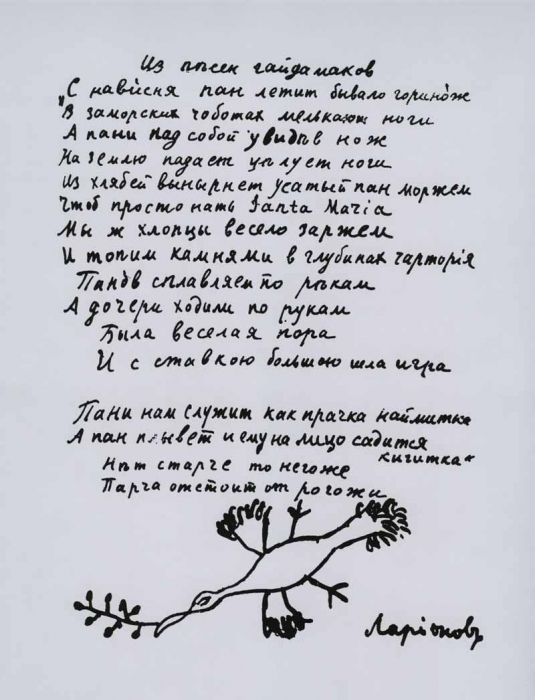 Из пѣсен гайдамаков
"С навiсня пан летит бывало горинож
В заморских чоботах мелькают ноги
А пани над собой увидѣв нож
На землю падает цѣлует ноги
Из хлябей вынырнет усатый пан моржем
Чтоб простонать Santa Maria
Мы ж хлопцы весело заржем
И топим камнями в глубинах чарторiя
Панов сплавляем по рѣкам
А дочери ходили по рукам
Была веселая пора
И с ставкою большою шла игра
Пани нам служит как прачка наймитка
А пан плывет и ему на лицо садится
кигитка"
Нѣт старче то негоже
Парча отстоит от рогожи
Ларiоновъ